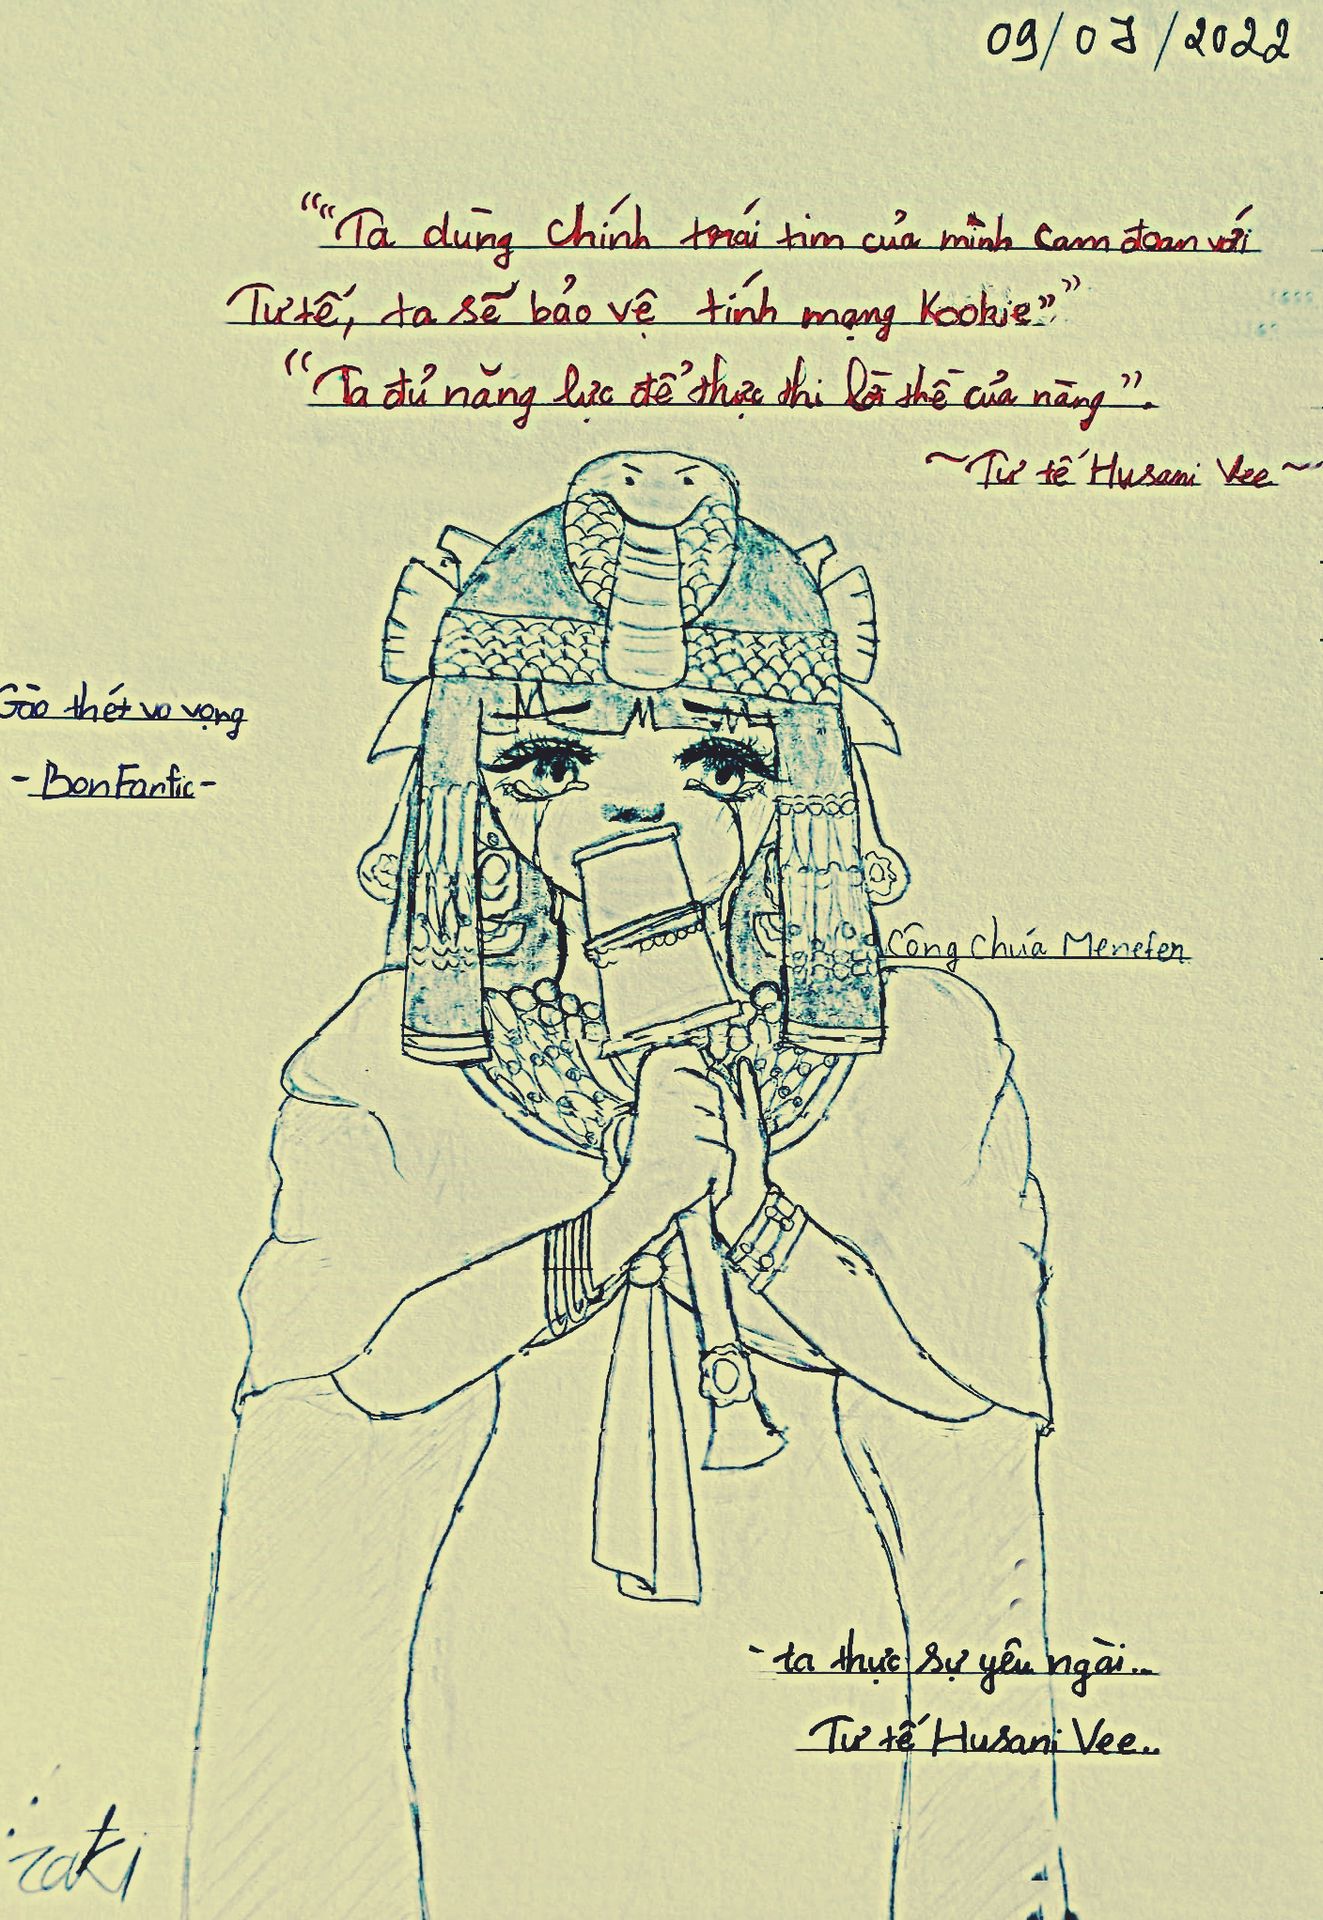 09/07/2022
““Ta dùng chính trái tim của mình cam đoan với
Tư tế, ta sẽ bảo vệ tính mạng Kookie””
“Ta đủ năng lực để thực thi lời thề của nàng”.
~Tư tế Husani Vee~
Gào thét vô vọng
- BonFanfic-
Công chúa Menefer
-ta thực sự yêu ngài...
Tư tế Husani Vee..
zaki